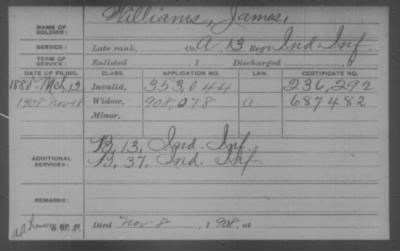 NAME OF SOLDIER: Williams, James,
SERVICE: Late rank, Co. A, 13 Reg't Ind. Inf.
TERM OF SERVICE: Enlisted , 1 Discharged , 1
DATE OF FILING. CLASS. APPLICATION NO. LAW. CERTIFICATE NO.
1880 Mch 12 Invalid, 353,044 236,292
1908 Nov 18 Widow, 908,078 687482
Minor,
ADDITIONAL SERVICES: B, 13, Ind. Inf.
B, 37. Ind. Inf
REMARKS:
Died Nov 8, 1908, at